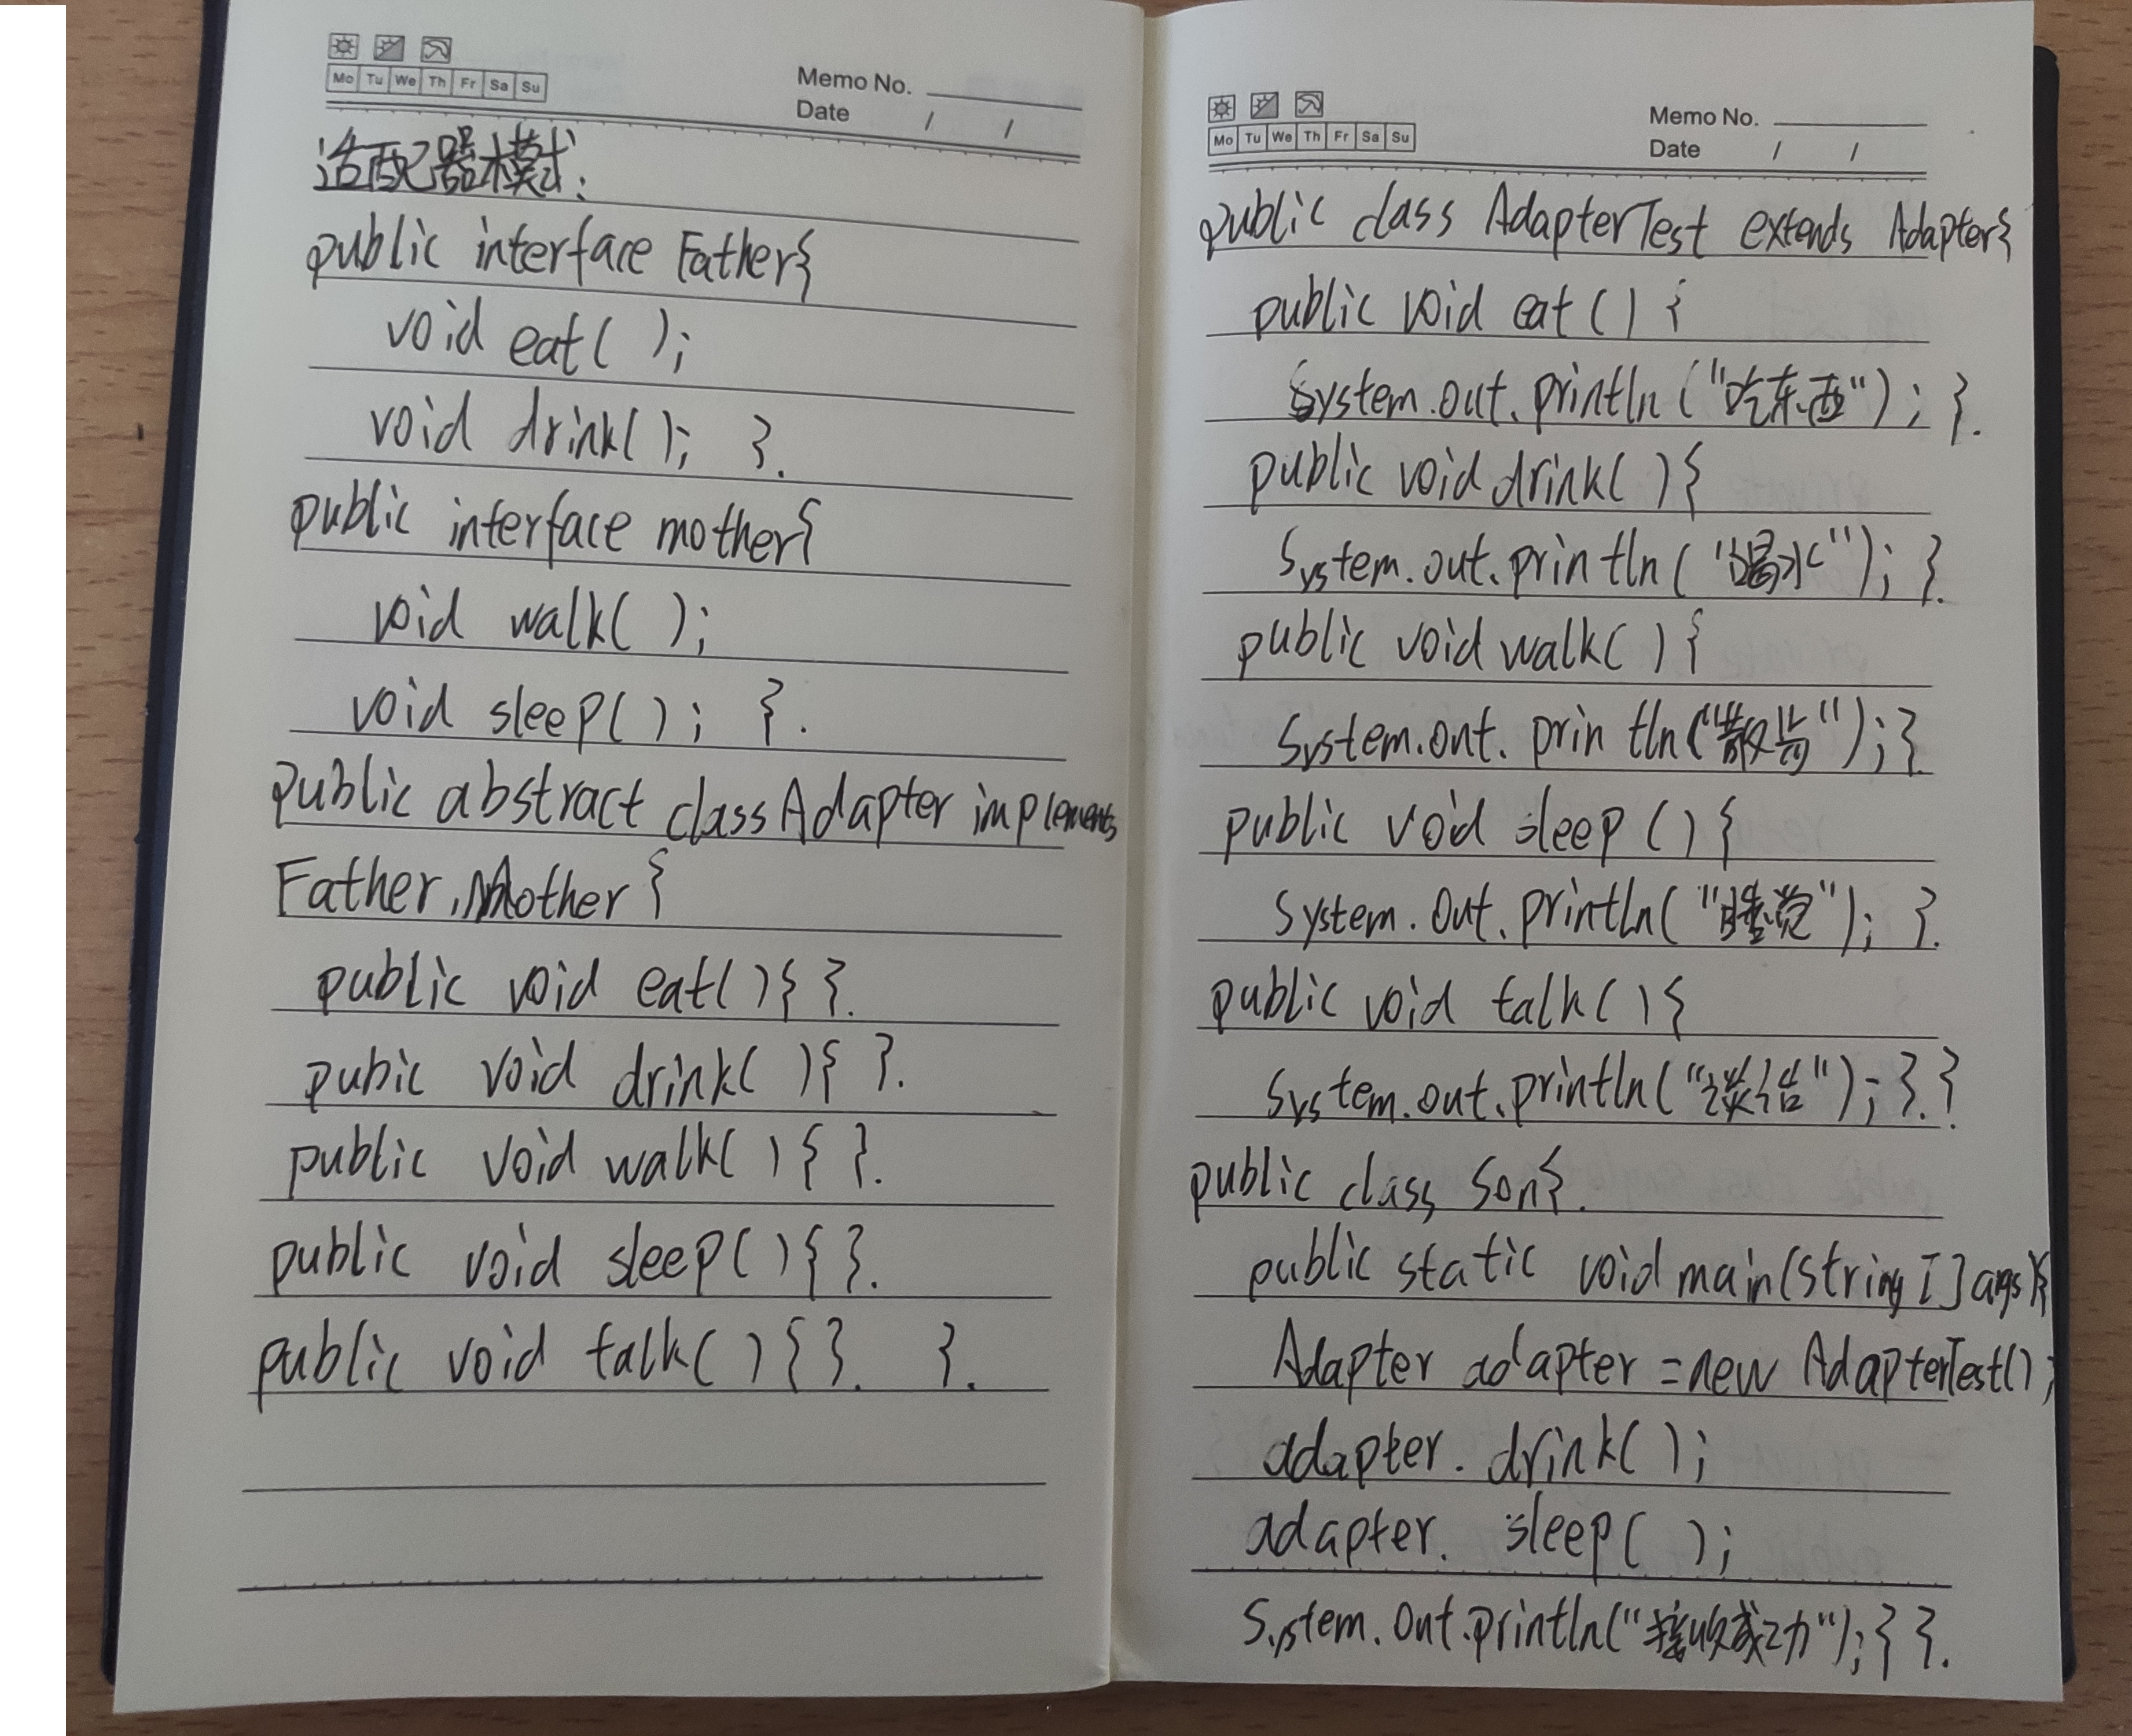 Mo Tu We Th Fr Sa Su
Memo No.
Date / /
适配器模式:
public interface Father{
void eat( );
void drink( ); }.
public interface mother{
void walk( );
void sleep( ); }.
public abstract class Adapter implements
Father, Mother {
public void eat( ){ }.
pubic void drink( ){ }.
public void walk( ){ }.
public void sleep( ){ }.
public void talk( ){ }. }.
Mo Tu We Th Fr Sa Su
Memo No.
Date / /
public class AdapterTest extends Adapter{
public void eat( ) {
System.out.println ("吃东西") ; }.
public void drink( ){
System.out.println ( "喝水" ); }.
public void walk( ) {
System.out.println ("散步" ); }.
public void sleep ( ) {
System.out.println( "睡觉" ); }.
public void talk ( ) {
System.out.println( "谈话" ); }. }.
public class Son{.
public static void main(string [ ] args){
Adapter adapter = new AdapterTest( );
adapter. drink( );
adapter. sleep( );
System.out.println("接收成功"); } }.